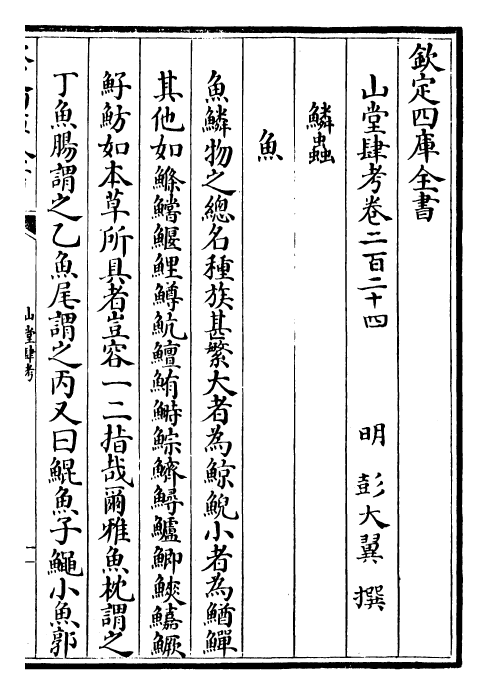 欽定四庫全書
山堂肆考卷二百二十四
明 彭大翼 撰
鱗蟲
魚
魚鱗物之總名種族甚繁大者為鯨鯢小者為鰌鱓
其他如鰷鱨鰋鯉鱒魧鱣鮪鰣鯮鱭鱘鱸鯽鰜鱚鱖
魣魴如本草所具者豈容一二指哉爾雅魚枕謂之
丁魚腸謂之乙魚尾謂之丙又曰鯤魚子鱦小魚郭
山堂肆考
一